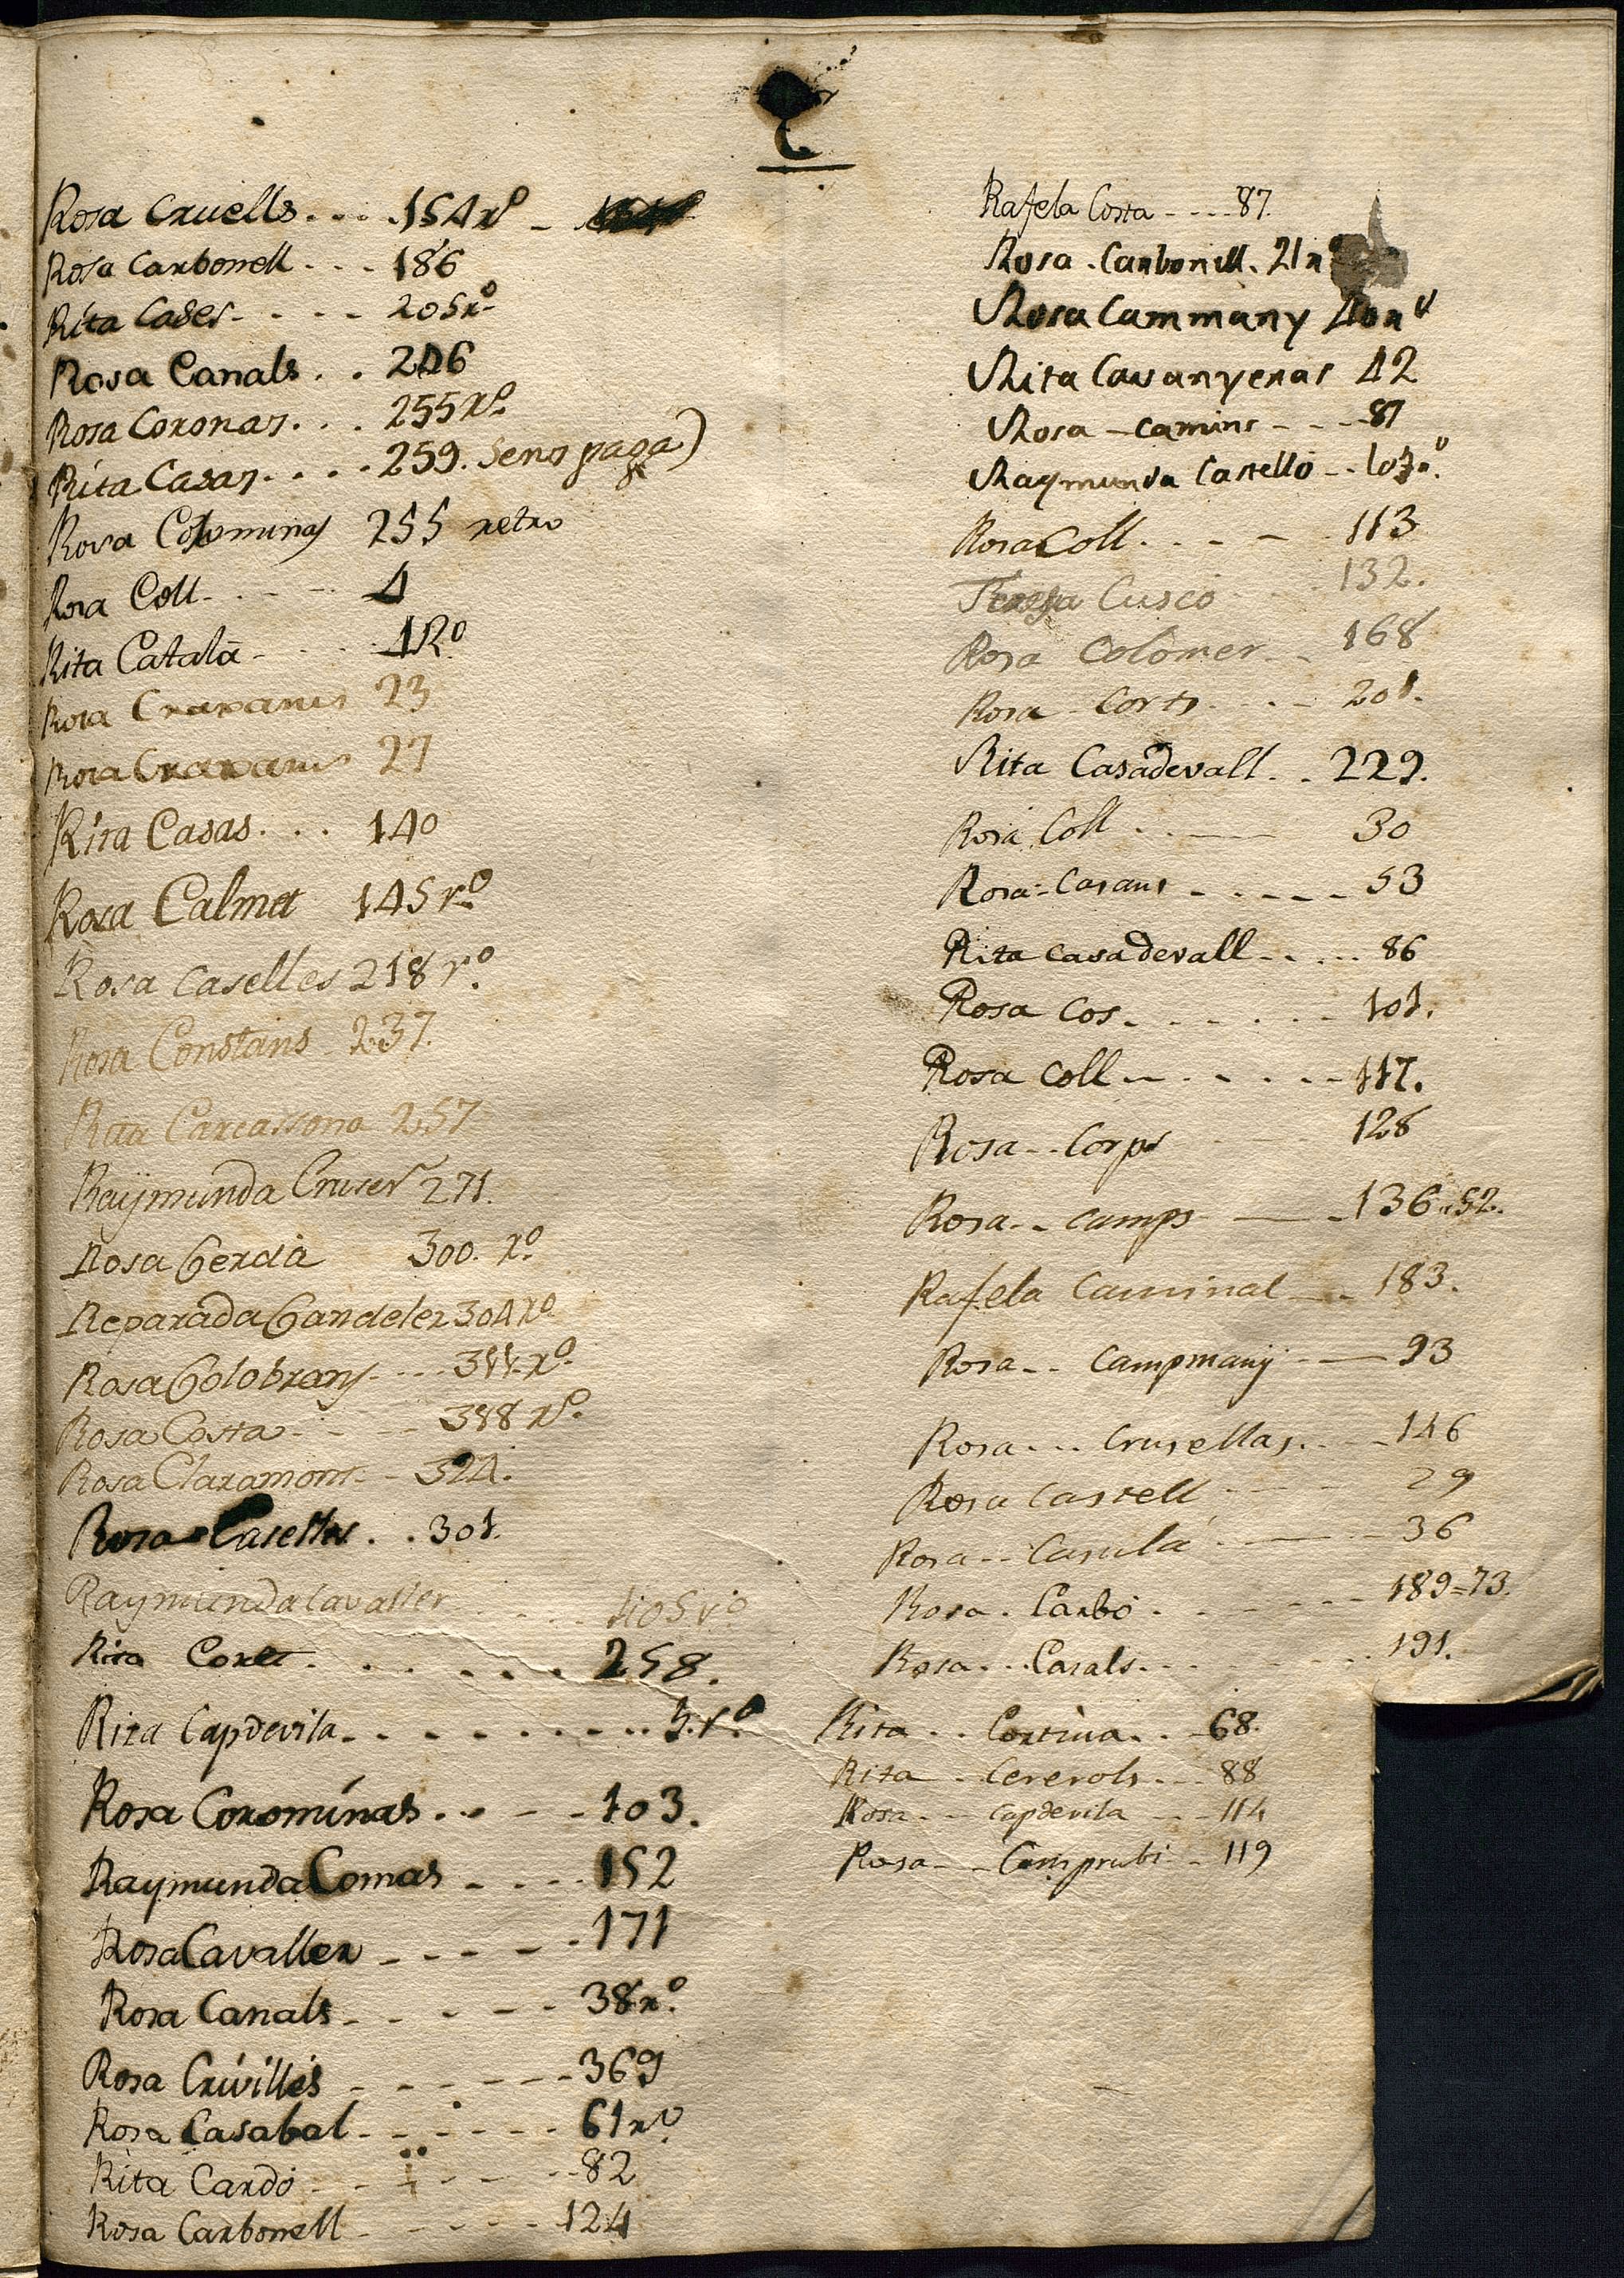 C
Rosa Cruells.... 154 rº -
Rosa Carbonell... 186
Rita Cases.... 205 rº
Rosa Canals.. 246
Rosa Coronas... 255 rº
Rita Casas.... 259. Senos paga)
Rosa Colominas 255 retro
Rosa Coll.... 4
Rita Catalá.... 4 Rº
Rosa Cravanis 23
Rosa Cravanis 27
Rita Casas... 140
Rosa Calmet 145 rº
Rosa Caselles 218 rº
Rosa Constans 237.
Rita Carcassona 257
Raÿmunda Cruser 271.
Rosa Cerdà 300. rº
Reparada Candeler 304 rº
Rosa Colobrans... 311. rº
Rosa Costa.... 318 rº
Rosa Claramont.. 324.
Rosa Caselles.. 301.
Raymunda Cavaller.... 405 rº
Rita Coret...... 258.
Rita Capdevila........ 3. rº
Rosa Corominas.... 103.
Raymunda Comas.... 152
Rosa Cavaller..... 171
Rosa Canals..... 38 rº
Rosa Crivillés...... 369
Rosa Casabal...... 61 rº
Rita Cardó..... 82
Rosa Carbonell..... 124
Rafela Costa.... 87.
Rosa Carbonell. 21 rº
Rosa Cammany 40 rº
Rita Casanyenas 42
Rosa camins.... 87
Raymunda Castelló.. 103 rº
Rosa Coll.... 113
Teresa Cuscó 132.
Rosa Colomer.. 168
Rosa Corts... 201.
Rita Casadevall.. 229.
Rosa Coll... 30
Rosa Casaus..... 53
Rita casadevall..... 86
Rosa Cos...... 101.
Rosa Coll...... 117.
Rosa.. Corps 128
Rosa.. camps — 136. 52.
Rafela Caminal.. 183.
Rosa.. Campmanÿ — 93
Rosa... Crusellas... 146
Rosa Castell.... 29
Rosa.. Casulá.... 36
Rosa. Carbó..... 189=73.
Rosa... Casals..... 191.
Rita.. Cortina.. 68.
Rita. Cererols... 88
Rosa.. Capdevila... 114
Rosa.. Comprubi.. 119